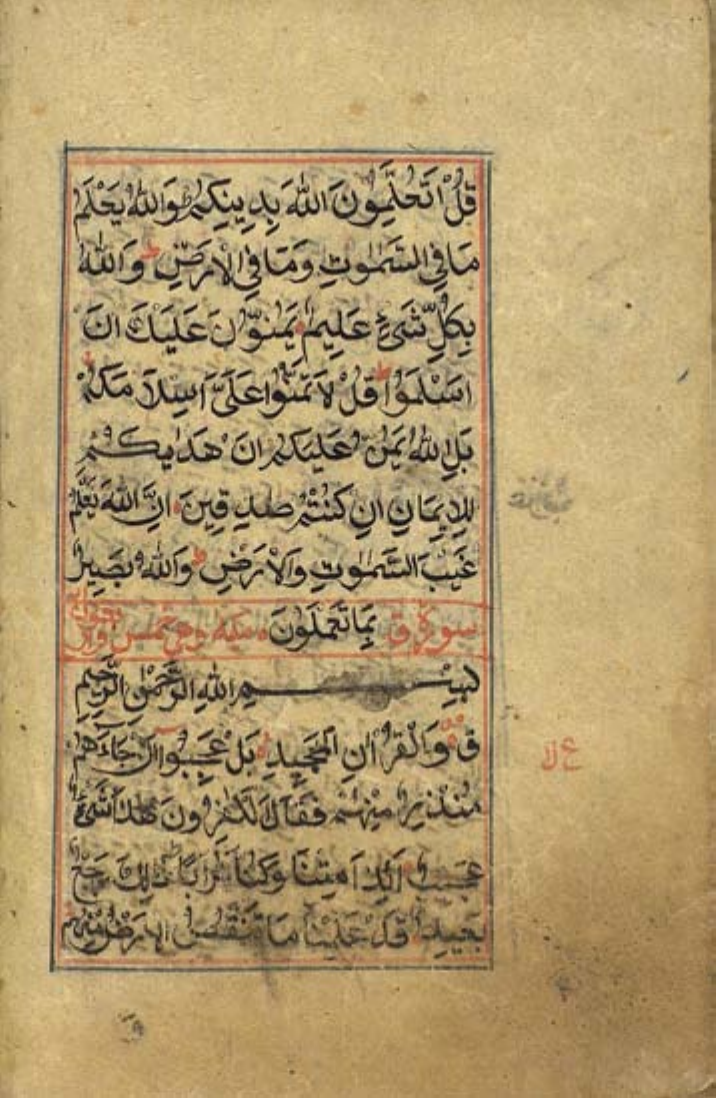 قُلْ اَتُعَلِّمُوْنَ اللّٰهَ بِدِيْنِكُمْ ؕ وَاللّٰهُ يَعْلَمُ
مَا فِي السَّمٰوٰتِ وَمَا فِي الْاَرْضِ ؕ وَاللّٰهُ
بِكُلِّ شَيْءٍ عَلِيْمٌ يَمُنُّوْنَ عَلَيْكَ اَنْ
اَسْلَمُوْا ؕ قُلْ لَا تَمُنُّوْا عَلَيَّ اِسْلَامَكُمْ ۚ
بَلِ اللّٰهُ يَمُنُّ عَلَيْكُمْ اَنْ هَدٰىكُمْ
لِلْاِيْمَانِ اِنْ كُنْتُمْ صٰدِقِيْنَ اِنَّ اللّٰهَ يَعْلَمُ
غَيْبَ السَّمٰوٰتِ وَالْاَرْضِ ؕ وَاللّٰهُ بَصِيْرٌ
سورة ق بِمَا تَعْمَلُوْنَ مكية وهي خمس
بِسْمِ اللّٰهِ الرَّحْمٰنِ الرَّحِيْمِ
قۤ وَالْقُرْاٰنِ الْمَجِيْدِ بَلْ عَجِبُوْا اَنْ جَآءَهُمْ
مُنْذِرٌ مِّنْهُمْ فَقَالَ الْكٰفِرُوْنَ هٰذَا شَيْءٌ
عَجِيْبٌ ءَاِذَا مِتْنَا وَكُنَّا تُرَابًا ذٰلِكَ رَجْعٌ
بَعِيْدٌ قَدْ عَلِمْنَا مَا تَنْقُصُ الْاَرْضُ مِنْهُمْ